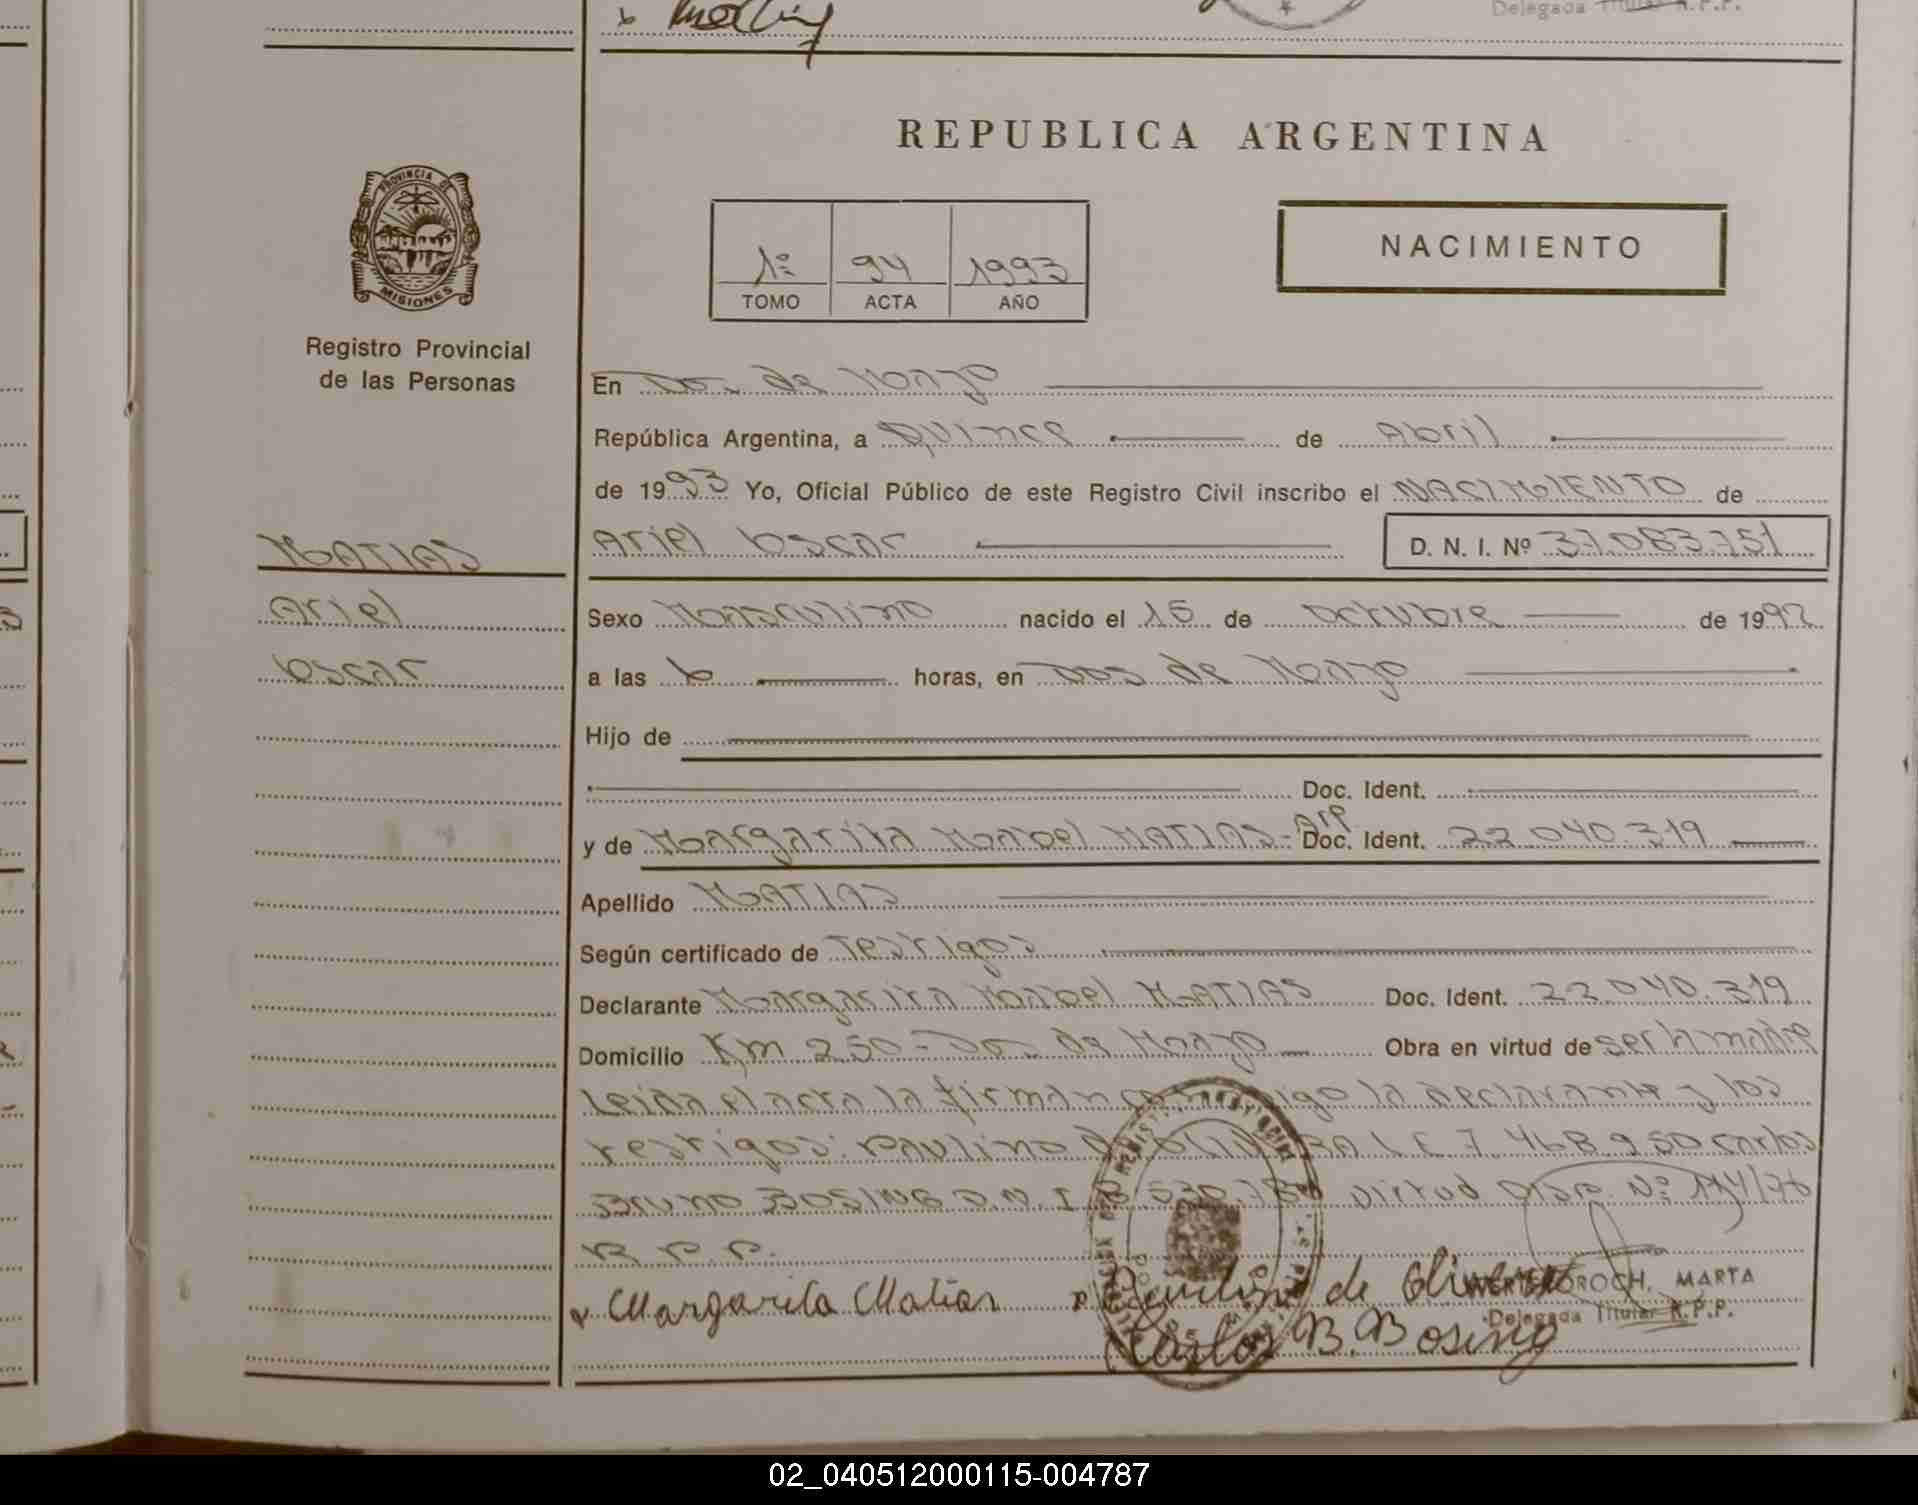 Delegada Titular R.P.P.
REPUBLICA ARGENTINA
PROVINCIA DE
MISIONES
Registro Provincial
de las Personas
1º 94 1993
TOMO ACTA AÑO
NACIMIENTO
En Dos de Mayo
República Argentina, a Quince de Abril
de 1993 Yo, Oficial Público de este Registro Civil inscribo el NACIMIENTO de
MATIAS
Ariel Oscar D. N. I. Nº 37.083.751
Ariel
Sexo Masculino nacido el 15 de Octubre de 1992
Oscar
a las 6 horas, en Dos de Mayo
Hijo de
Doc. Ident.
y de Margarita Mabel MATIAS - Arg Doc. Ident. 22.040.319
Apellido MATIAS
Según certificado de Testigos
Declarante Margarita Mabel MATIAS Doc. Ident. 22.040.319
Domicilio Km 250 - Dos de Mayo Obra en virtud de ser la madre
Leida el acta la firman conmigo la declarante y los
testigos: Paulino de OLIVERA L E 7.468.950 Carlos
Bruno BOSING D.N.I. virtud Disp. Nº 114/76
R.P.P.
x Margarita Matias Paulino de Olivera
MARTA
Delegada Titular R.P.P.
Carlos B. Bosing
02_040512000115-004787